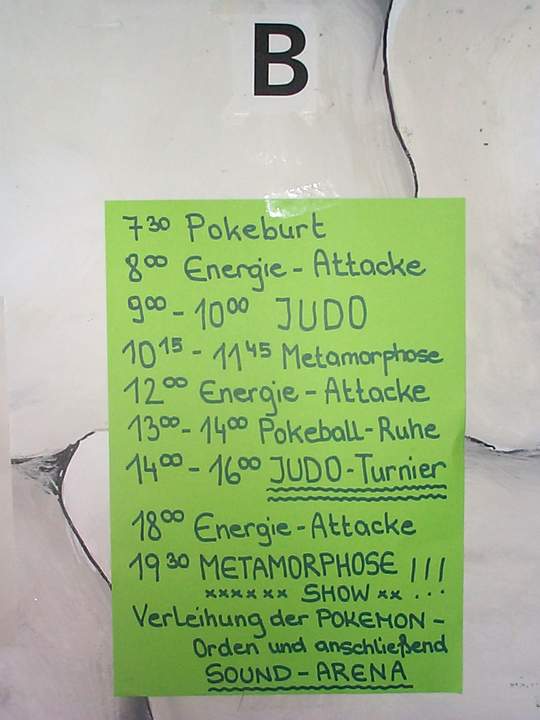 B
7³⁰ Pokeburt
8⁰⁰ Energie-Attacke
9⁰⁰ - 10⁰⁰ JUDO
10¹⁵ - 11⁴⁵ Metamorphose
12⁰⁰ Energie-Attacke
13⁰⁰ - 14⁰⁰ Pokeball-Ruhe
14⁰⁰ - 16⁰⁰ JUDO-Turnier
18⁰⁰ Energie-Attacke
19³⁰ METAMORPHOSE !!!
xxxxxx SHOW xx ...
Verleihung der POKEMON-
Orden und anschließend
SOUND-ARENA